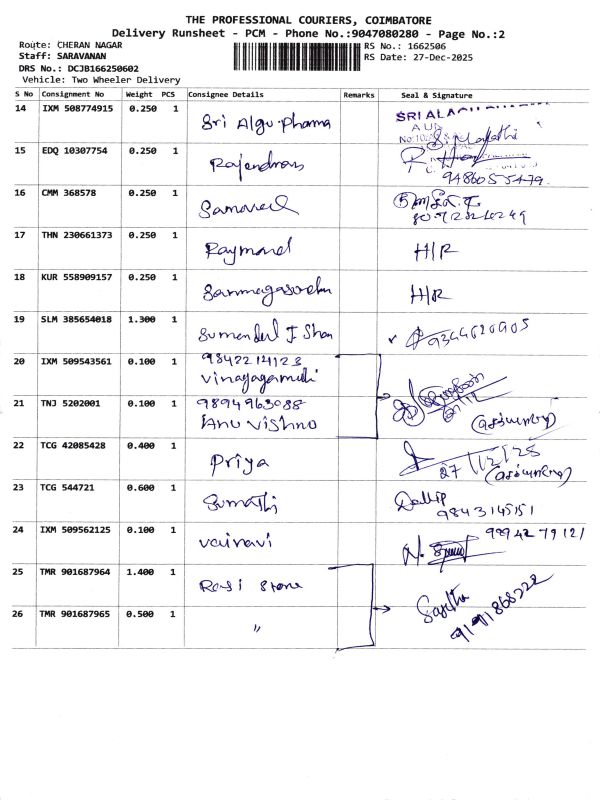 THE PROFESSIONAL COURIERS, COIMBATORE
Delivery Runsheet - PCM - Phone No.:9047080280 - Page No.:2
Route: CHERAN NAGAR RS No.: 1662506
Staff: SARAVANAN RS Date: 27-Dec-2025
DRS No.: DCJB166250602
Vehicle: Two Wheeler Delivery
S No Consignment No Weight PCS Consignee Details Remarks Seal & Signature
14 IXM 508774915 0.250 1 Sri Algu Pharma
15 EDQ 10307754 0.250 1 Rajendran 9486055479
16 CMM 368578 0.250 1
17 THN 230661373 0.250 1 Raymond H/R
18 KUR 558909157 0.250 1 H/R
19 SLM 385654018 1.300 1 9344620905
20 IXM 509543561 0.100 1 9842214123
21 TNJ 5202001 0.100 1 9894963088
Anu Vishno
22 TCG 42085428 0.400 1 Priya 27/12/25
23 TCG 544721 0.600 1 Sumathi Dallip
9843145151
24 IXM 509562125 0.100 1 Vairavi 9894279121
25 TMR 901687964 1.400 1 Rasi Stone
26 TMR 901687965 0.500 1 "